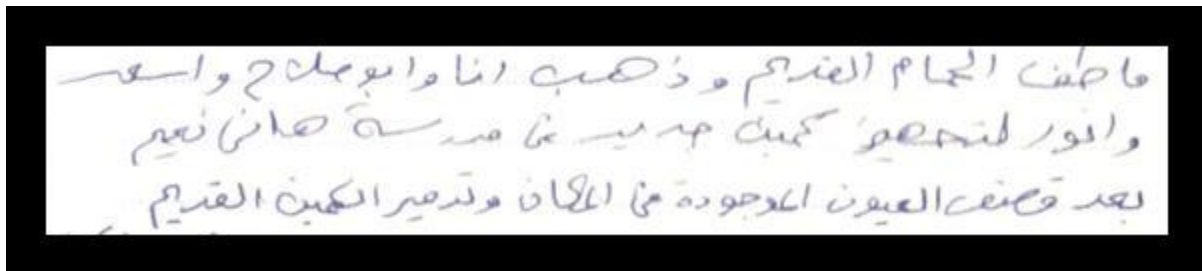 قاطف الحمام القديم وذهب انا وابو صلاح واسعد
وانور لتجهيز كمين جديد في مدرسة هاني نعيم
بعد قصف العيون الموجودة في المكان وتدمير الكمين القديم